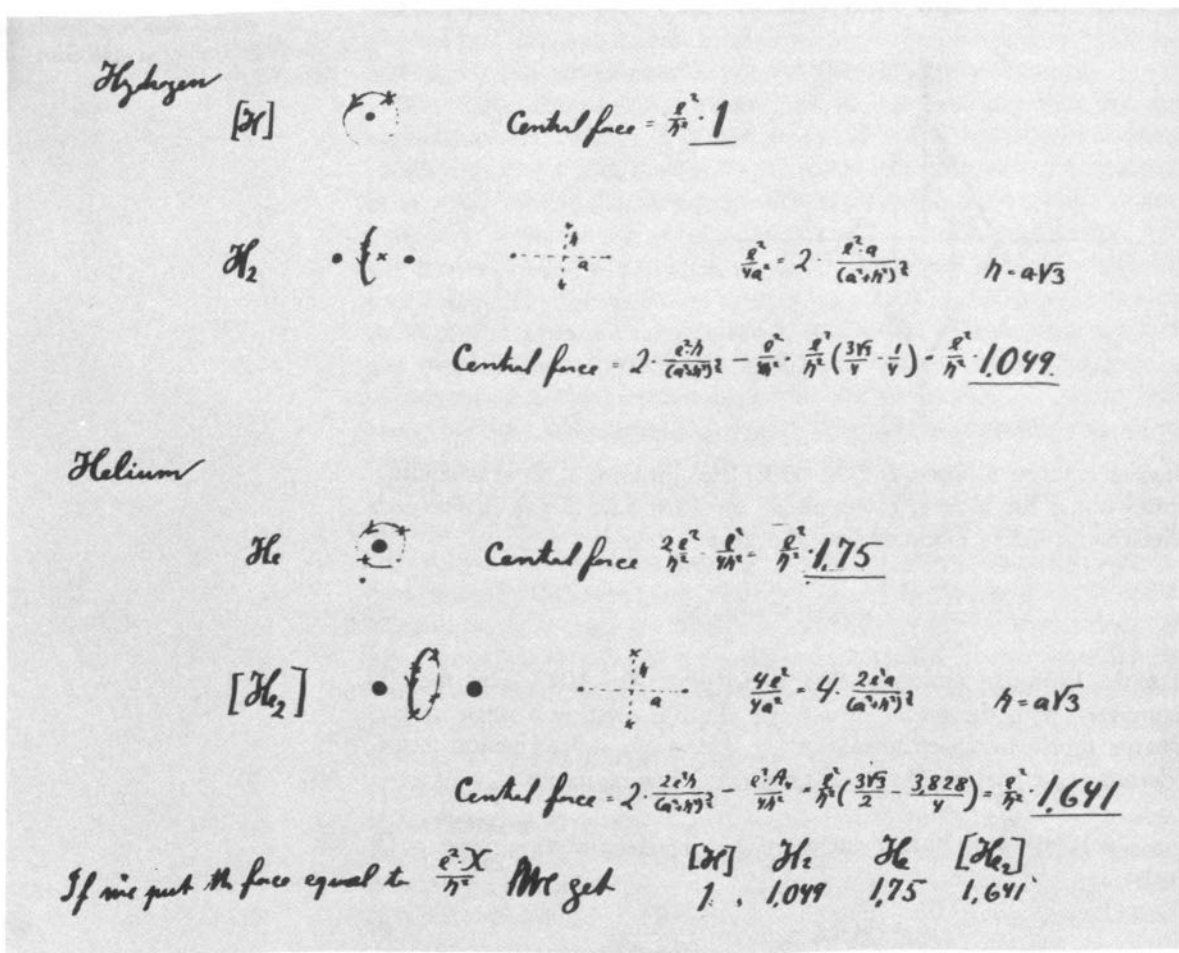 Hydrogen
[H] Central force = e²/h² · 1
H₂ h a e²/4a² = 2 · e²·a/(a²+h²)^3/2 h = a√3
Central force = 2 · e²·h/(a²+h²)^3/2 − e²/4h² = e²/h² (3√3/4 − 1/4) = e²/h² · 1.049
Helium
He Central force 2e²/h² − e²/4h² = e²/h² · 1,75
[He₂] h a 4e²/4a² = 4 · 2e²a/(a²+h²)^3/2 h = a√3
Central force = 2 · 2e²h/(a²+h²)^3/2 − e²·A₄/4h² = e²/h² (3√3/2 − 3,828/4) = e²/h² · 1,641
[H] H₂ He [He₂]
If we put the force equal to e²·X/h² We get 1 1,049 1,75 1,641